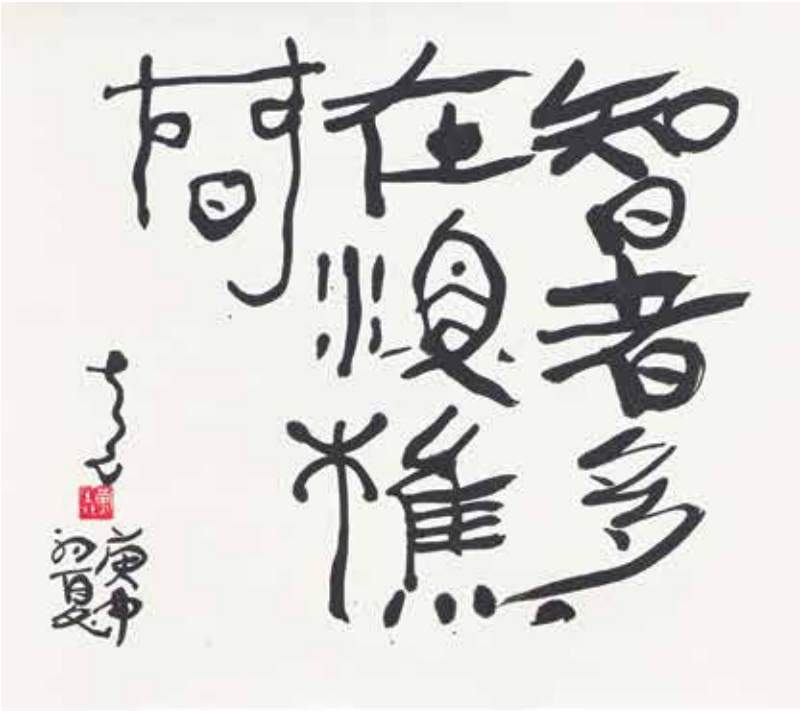 智者多
在漁樵
間
庚申
初夏